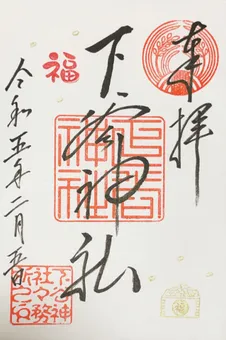 奉拝
下谷神社
下谷
神社
福
令和五年二月五日
下谷神
社々務
所之印